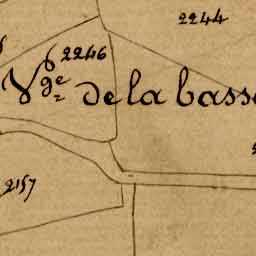 2244
2246
Vge de la basse
2157